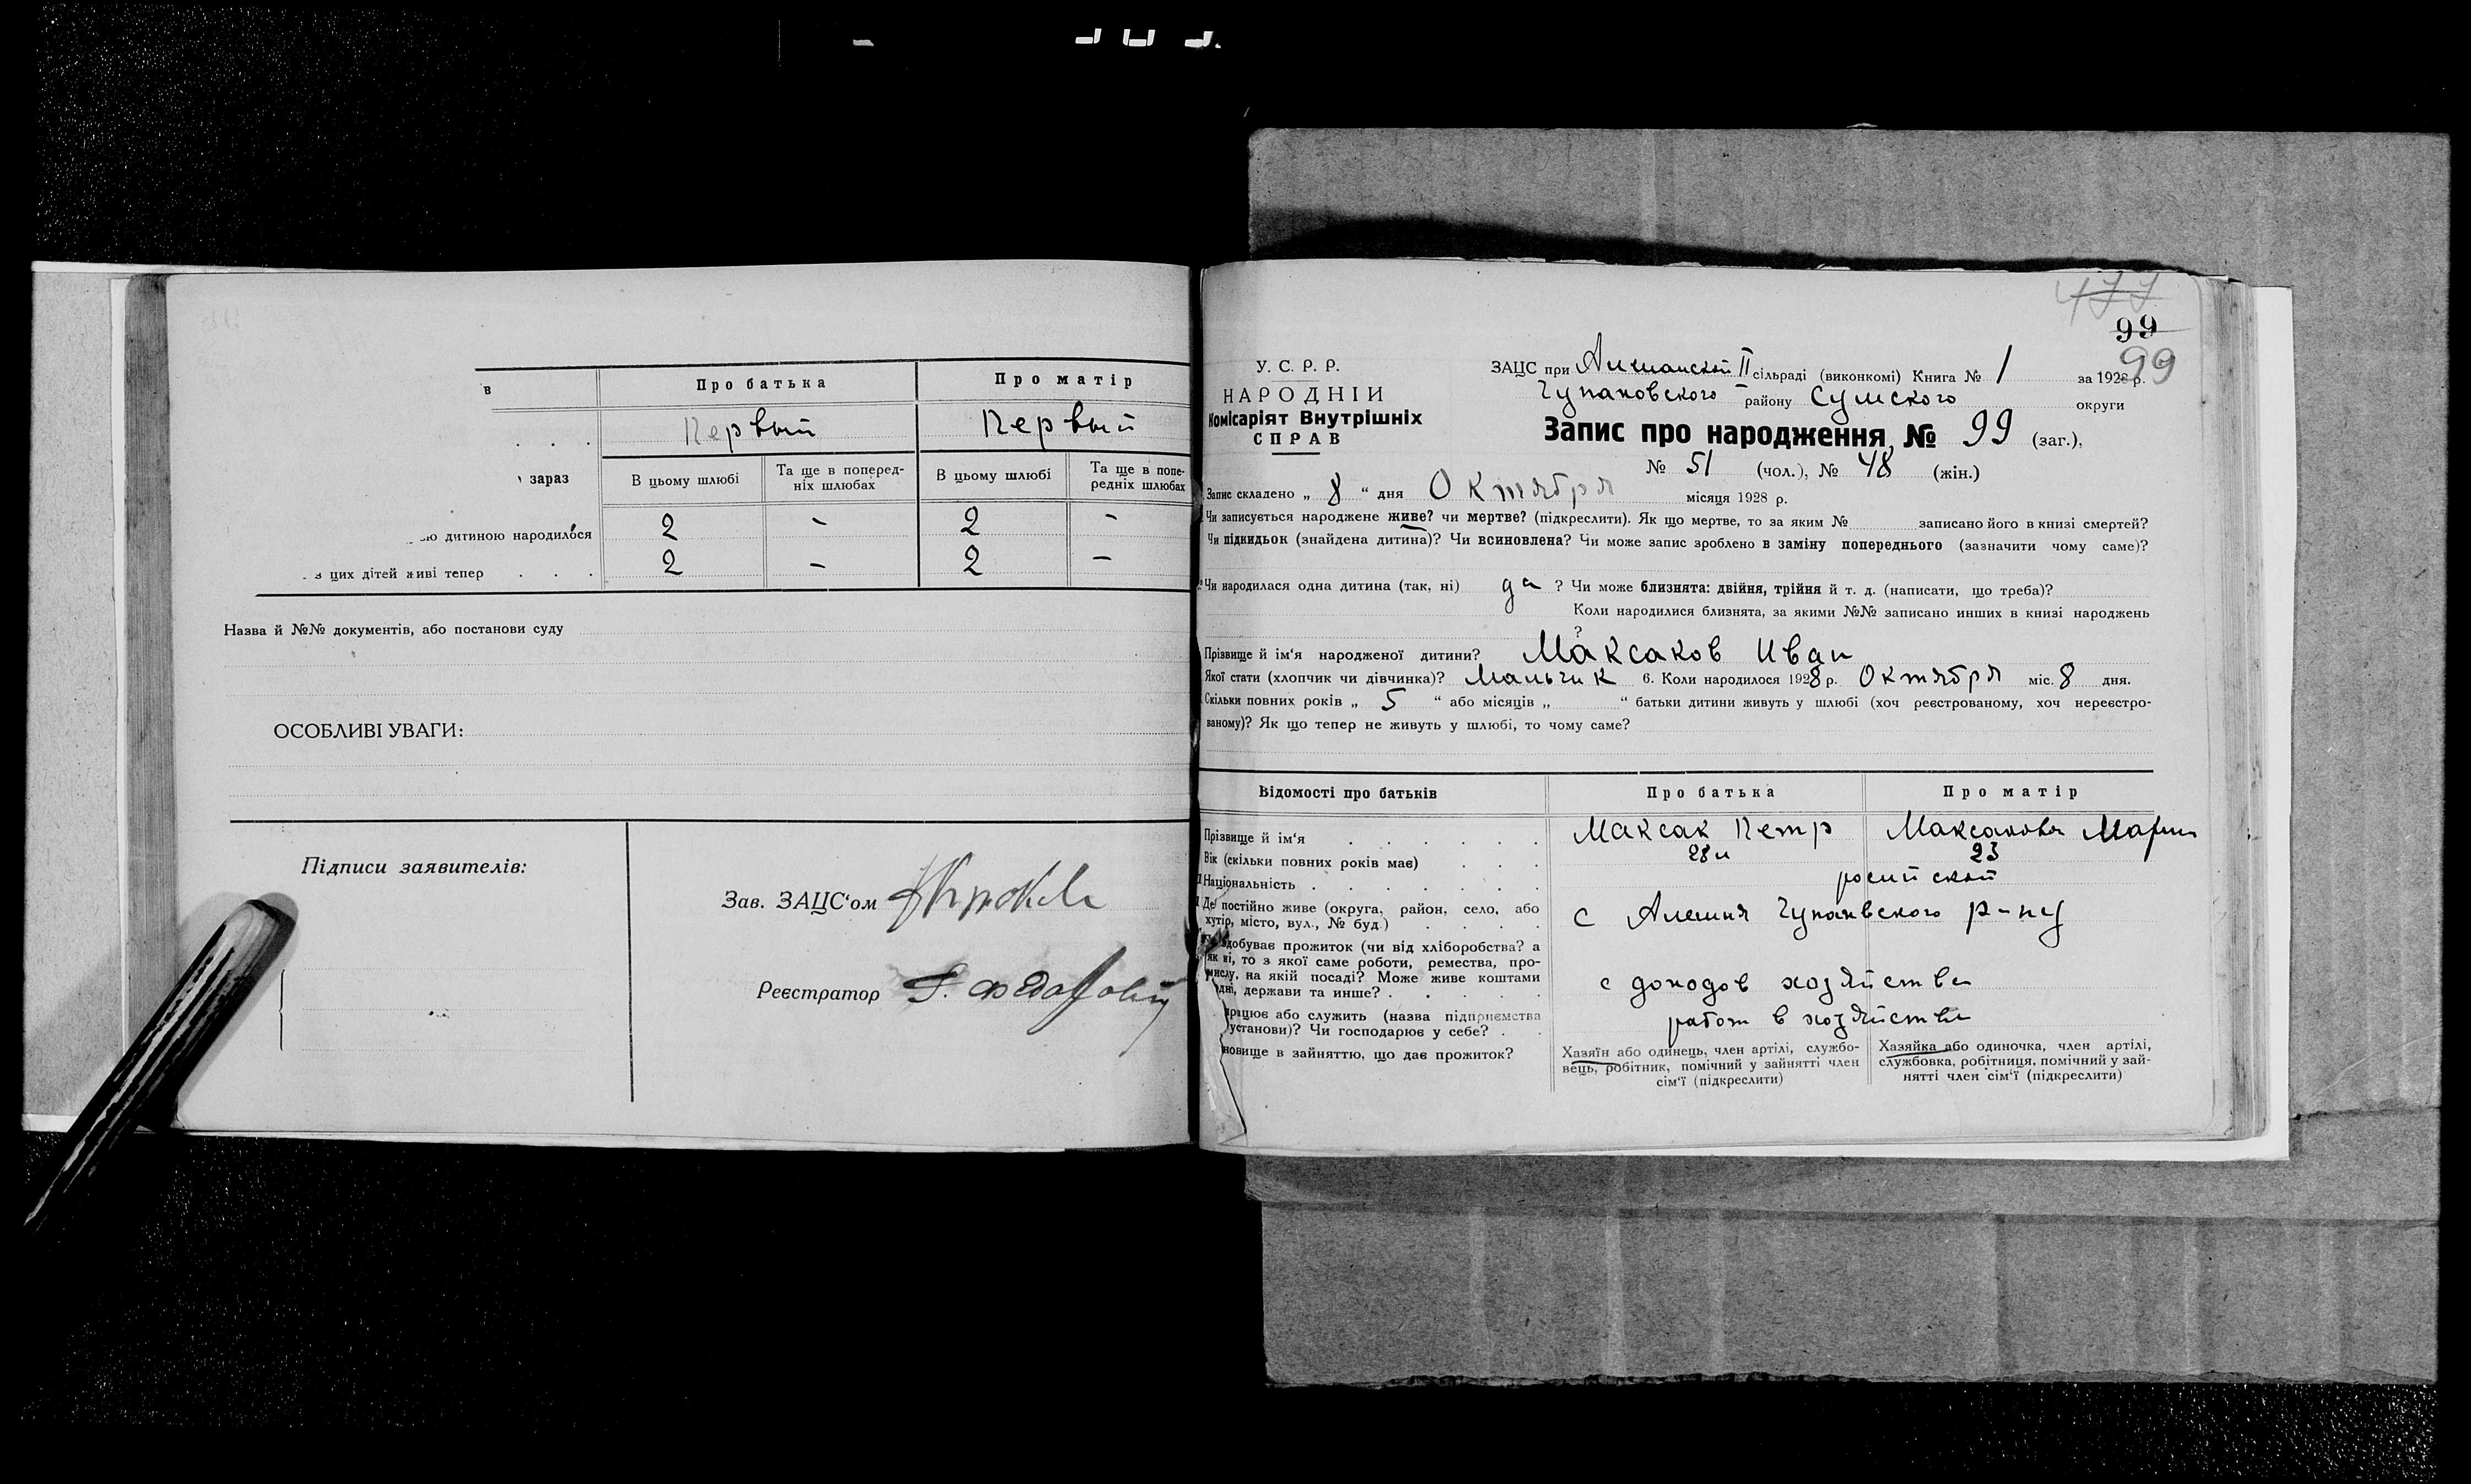 в
Про батька
Про матір
Первый
Первый
зараз
В цьому шлюбі
Та ще в поперед-
ніх шлюбах
В цьому шлюбі
Та ще в попе-
редніх шлюбах
ю дитиною народилося
2
-
2
-
з цих дітей живі тепер . . .
2
-
2
-
Назва й №№ документів, або постанови суду
ОСОБЛИВІ УВАГИ:
Підписи заявителів:
Зав. ЗАЦС‘ом
Реєстратор
477
99
99
У. С. Р. Р.
НАРОДНІЙ
Комісаріят Внутрішніх
СПРАВ
ЗАЦС при Алешанской II сільраді (виконкомі) Книга № 1 за 1928 р.
Чупаховского району Сумского округи
Запис про народження № 99 (заг.),
№ 51 (чол.), № 48 (жін.)
Запис складено „ 8 “ дня Октября місяця 1928 р.
Чи записується народжене живе? чи мертве? (підкреслити). Як що мертве, то за яким № записано його в книзі смертей?
Чи підкидьок (знайдена дитина)? Чи всиновлена? Чи може запис зроблено в заміну попереднього (зазначити чому саме)?
Чи народилася одна дитина (так, ні) да ? Чи може близнята: двійня, трійня й т. д. (написати, що треба)?
Коли народилися близнята, за якими №№ записано инших в книзі народжень
?
Прізвище й ім‘я народженої дитини? Максаков Иван
Якої стати (хлопчик чи дівчинка)? Мальчик 6. Коли народилося 1928 р. Октября міс. 8 дня.
Скільки повних років „ 5 “ або місяців „ “ батьки дитини живуть у шлюбі (хоч реєстрованому, хоч нереєстро-
ваному)? Як що тепер не живуть у шлюбі, то чому саме?
Відомості про батьків
Про батька
Про матір
Прізвище й ім‘я . . . . . .
Максак Петр
Максакова Мария
Вік (скільки повних років має) . . .
28
23
Національність . . . . . . .
Де постійно живе (округа, район, село, або
хутір, місто, вул., № буд.) . . . .
с Алешня Чупаховского р-ну
здобуває прожиток (чи від хліборобства? а
як ні, то з якої саме роботи, ремества, про-
мислу, на якій посаді? Може живе коштами
держави та инше? . . . .
с доходов хозяйства
працює або служить (назва підприємства
установи)? Чи господарює у себе? . .
работ в хозяйстве
новище в зайняттю, що дає прожиток?
Хазяїн або одинець, член артілі, службо-
вець, робітник, помічний у зайнятті член
сім‘ї (підкреслити)
Хазяйка або одиночка, член артілі,
службовка, робітниця, помічний у зай-
нятті член сім‘ї (підкреслити)